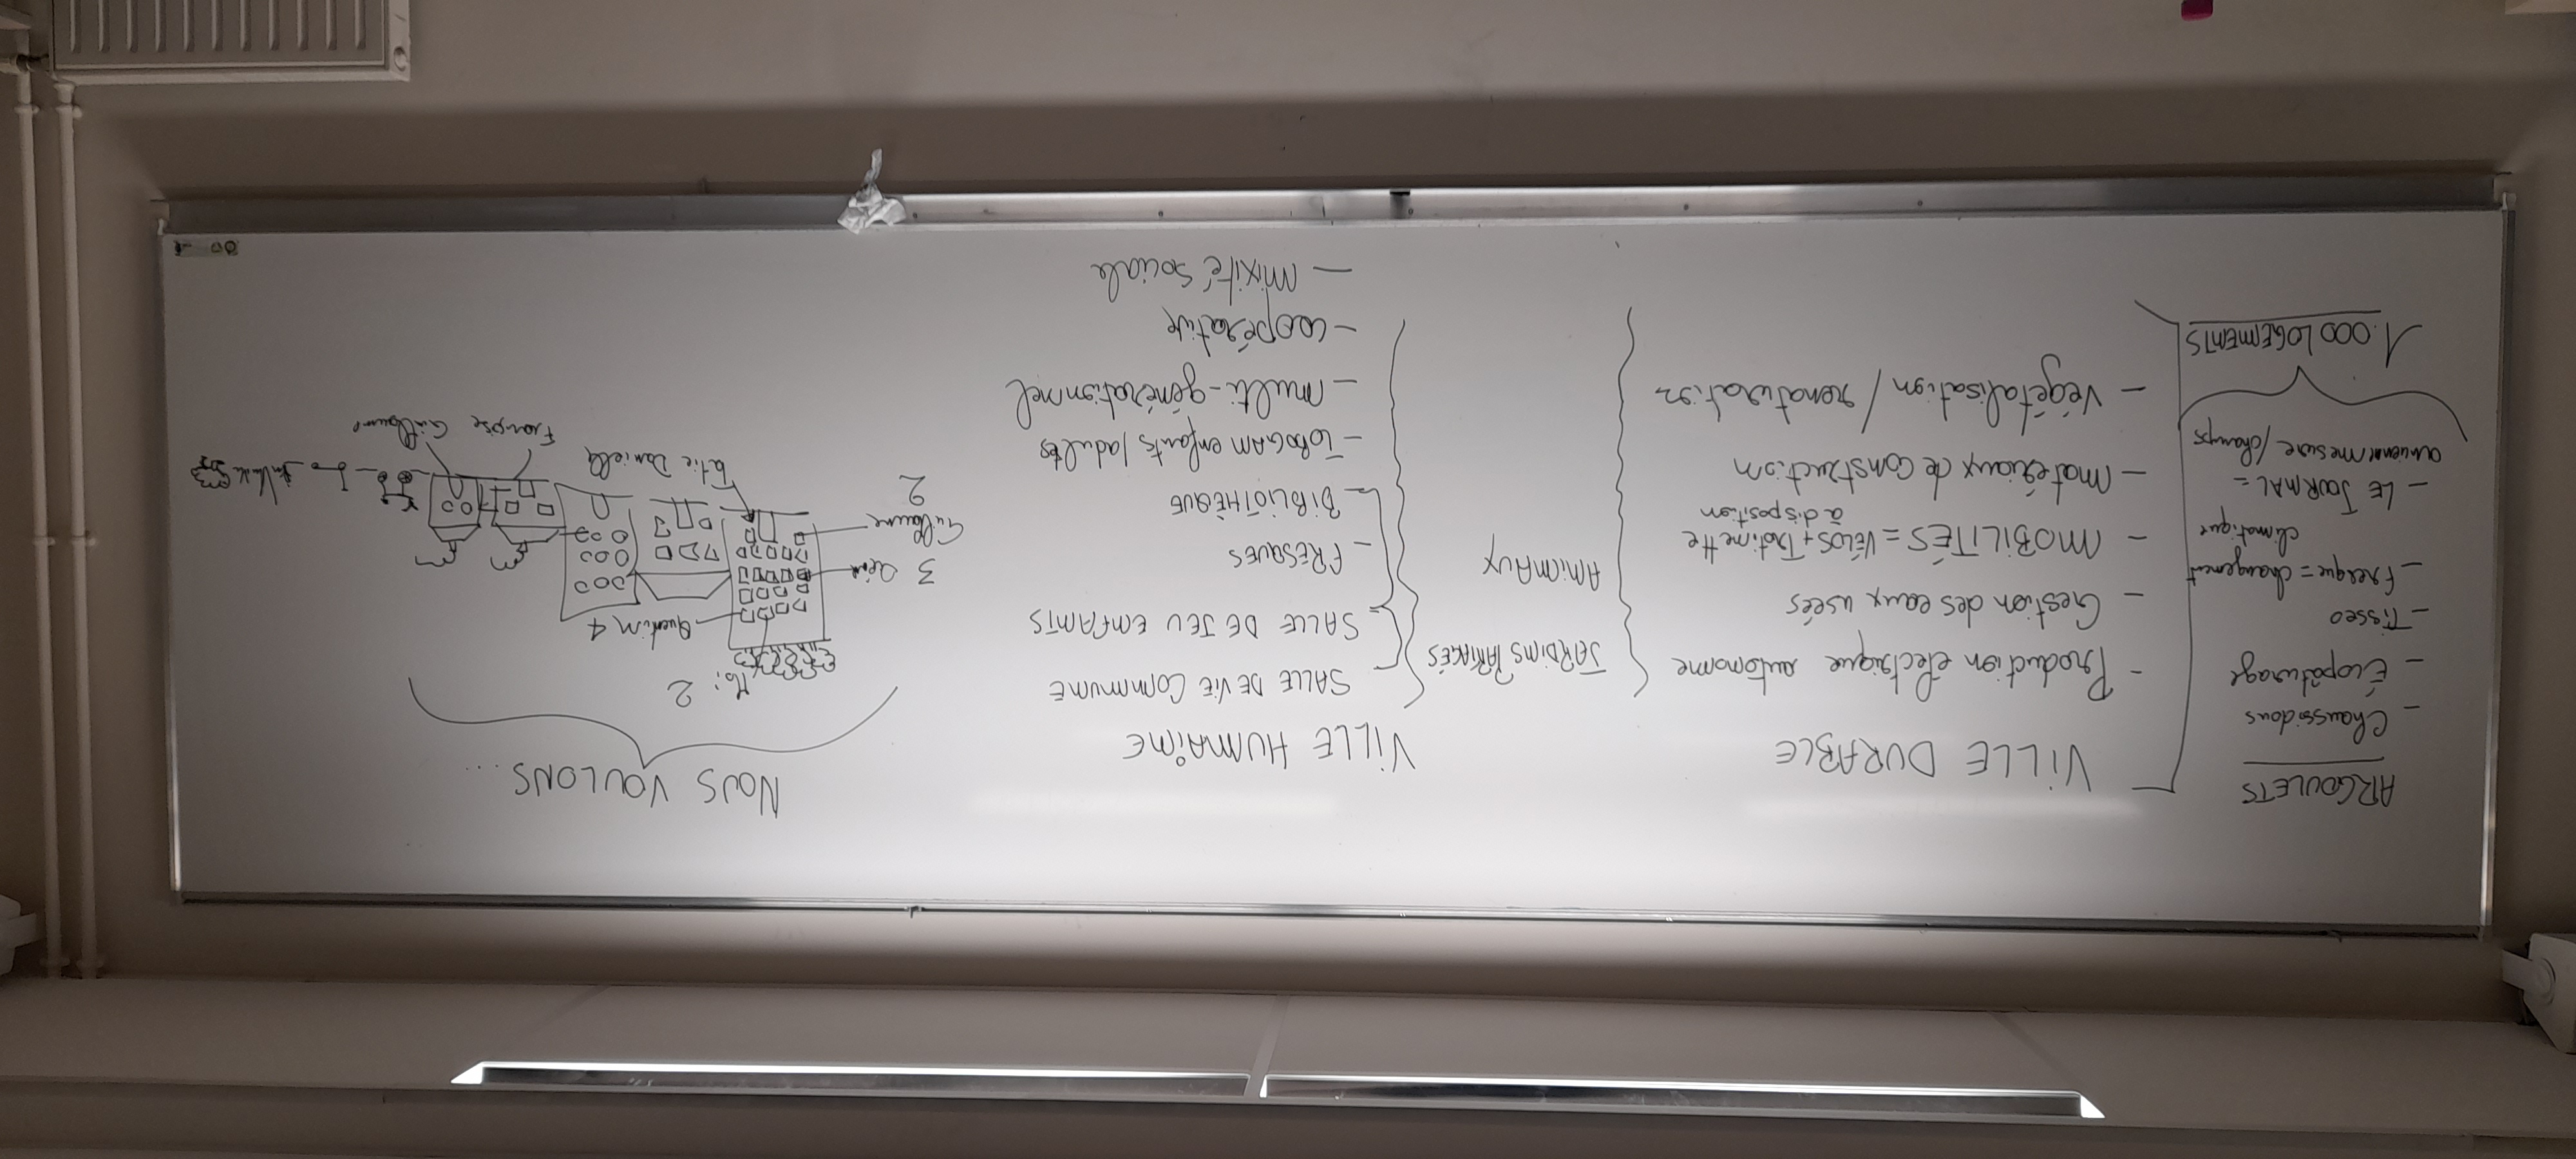 ARGOULETS
- Chaussidous
- Écopâturage
- Tisseo
- Fresque = changement
climatique
- LE JOURNAL =
ancienne mesure / champs
1.000 LOGEMENTS
VILLE DURABLE
- Production électrique autonome
- Gestion des eaux usées
- MOBILITÉS = VÉLOS + Trotinette
à disposition
- matériaux de construction
- végétalisation / renaturation
JARDINS PARTAGÉS
ANIMAUX
VILLE HUMAINE
SALLE DE VIE COMMUNE
- SALLE DE JEU ENFANTS
- FRESQUES
- BIBLIOTHÈQUE
- TOBOGAM enfants / adultes
- multi-générationnel
- coopérative
- mixité sociale
NOUS VOULONS...
Moi 2
Quentin 4
3
Guillaume
2
Tatie Danielle
Françoise Guillaume